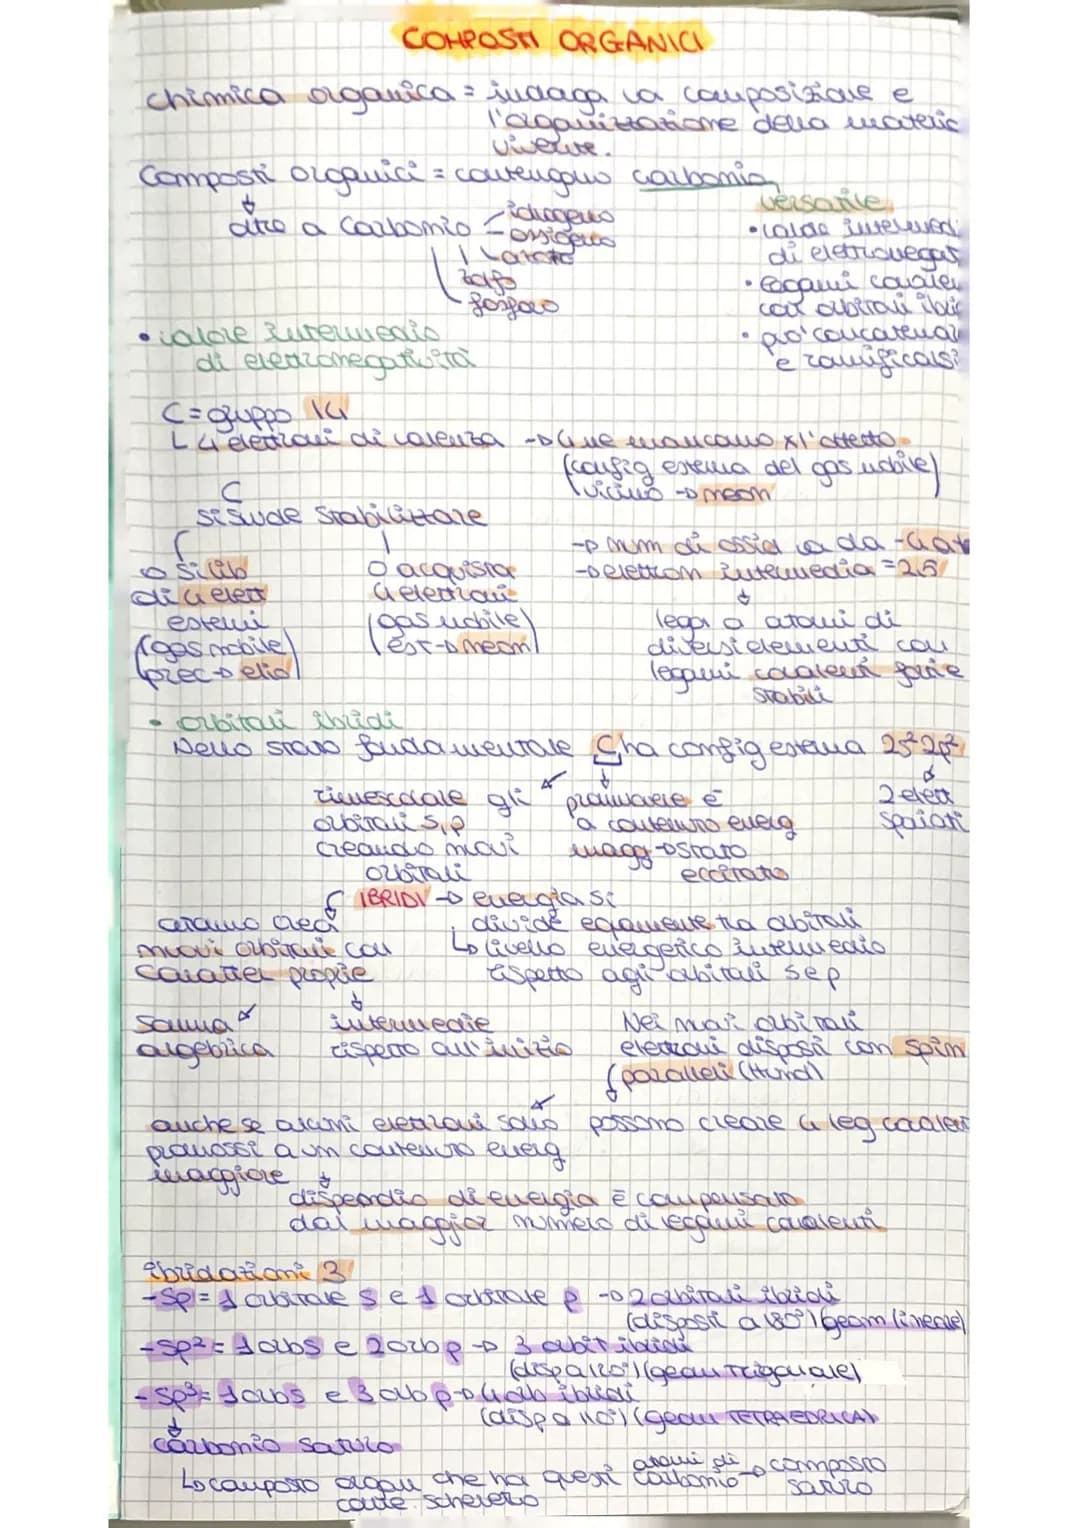 COMPOSTI ORGANICI
chimica organica = indaga la composizione e
l'organizzazione della materia
vivente.
Composti organici = contengono carbonio
versatile
oltre a Carbonio
idrogeno
ossigeno
azoto
zolfo
fosforo
• valore intermed
di elettronegat
• legami covalen
con orbitali ibri
• può concatenar
e ramificarsi
• valore intermedio
di elettronegatività
C = gruppo 14
4 elettroni di valenza → 4 ne mancano x l'ottetto
(config esterna del gas nobile)
vicino → neon
C
si vuole stabilizzare
o si lib
di 4 elett
esterni
(gas nobile)
prec → elio
o acquista
4 elettroni
(gas nobile)
est → neon
→ num di ossid va da -4 a +
→ elettron intermedia = 2,5
lega a atomi di
diversi elementi con
legami covalenti forti e
stabili
• orbitali ibridi
Nello stato fondamentale C ha config esterna 2s² 2p²
2 elett
spaiati
rimescolare gli
orbitali s, p
creando nuovi
orbitali
promuovere e
a contenuto energ
magg → stato
eccitato
IBRIDI → energia si
divide egamente tra orbitali
↳ livello energetico intermedio
rispetto agli orbitali s e p
nuovi orbitali con
caratter proprie
somma
algebrica
intermedie
rispetto all'inizio
Nei nuovi orbitali
elettroni disposti con spin
paralleli (Hund)
possono creare 4 leg covalent
anche se alcuni elettroni sono
promossi a un contenuto energ
maggiore
dispendio di energia è compensato
dal maggior numero di legami covalenti
ibridazioni 3
- sp = 1 orbitale s e 1 orbitale p → 2 orbitali ibridi
(disposti a 180°) (geom lineare)
- sp² = 1 orb s e 2 orb p → 3 orbit ibridi
(disp a 120°) (geom trigonale)
- sp³ = 1 orb s e 3 orb p → 4 orb ibridi
(disp a 110°) (geom TETRAEDRICA)
carbonio saturo
↳ composto organ che ha questi atomi di carbonio → composto saturo
come scheletro